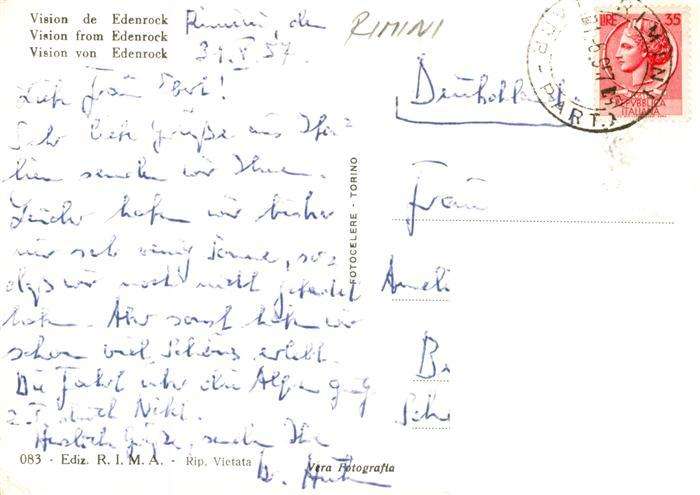 Vision de Edenrock
Vision from Edenrock
Vision von Edenrock
Rimini, den
31.V.57.
RIMINI
LIRE 35
REPUBBLICA
ITALIANA
RIMINI
ARR. PART.
Deutschland
Liebe Frau Ebert!
Sehr liebe Grüße aus Ita-
lien senden wir Ihnen.
Leider haben wir bisher
nur sehr wenig Sonne, so-
daß wir noch nicht gebadet
haben. Aber sonst haben wir
schon viel Schönes erlebt.
Die Fahrt über die Alpen ging
z.T. durch Nebel.
Herzliche Grüße senden Ihnen
Frau
Ameli
B
Sch
FOTOCELERE - TORINO
083 - Ediz. R. I. M. A. - Rip. Vietata
Vera Fotografia